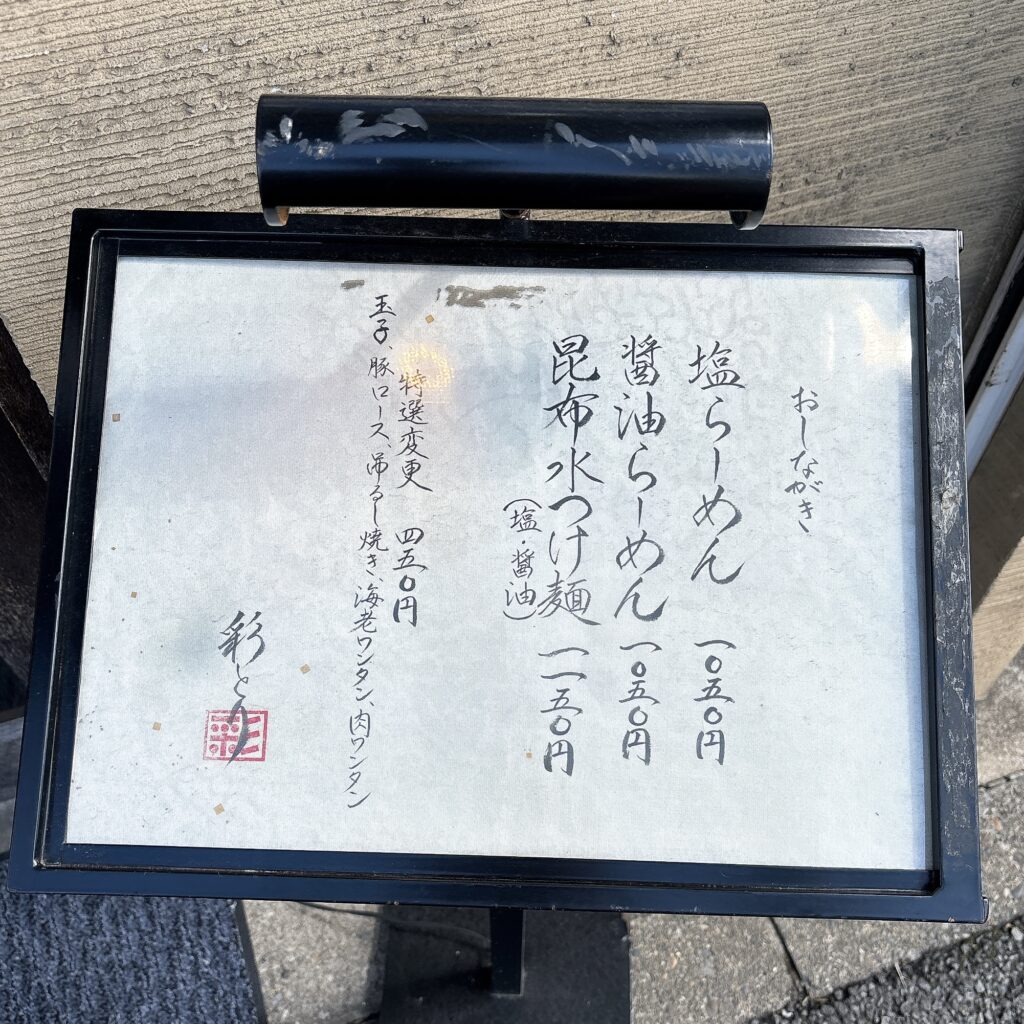 おしながき
塩らーめん 一〇五〇円
醤油らーめん 一〇五〇円
昆布水つけ麺 一一五〇円
(塩・醤油)
特選変更 四五〇円
玉子、豚ロース、吊るし焼き、海老ワンタン、肉ワンタン
彩とり
彩